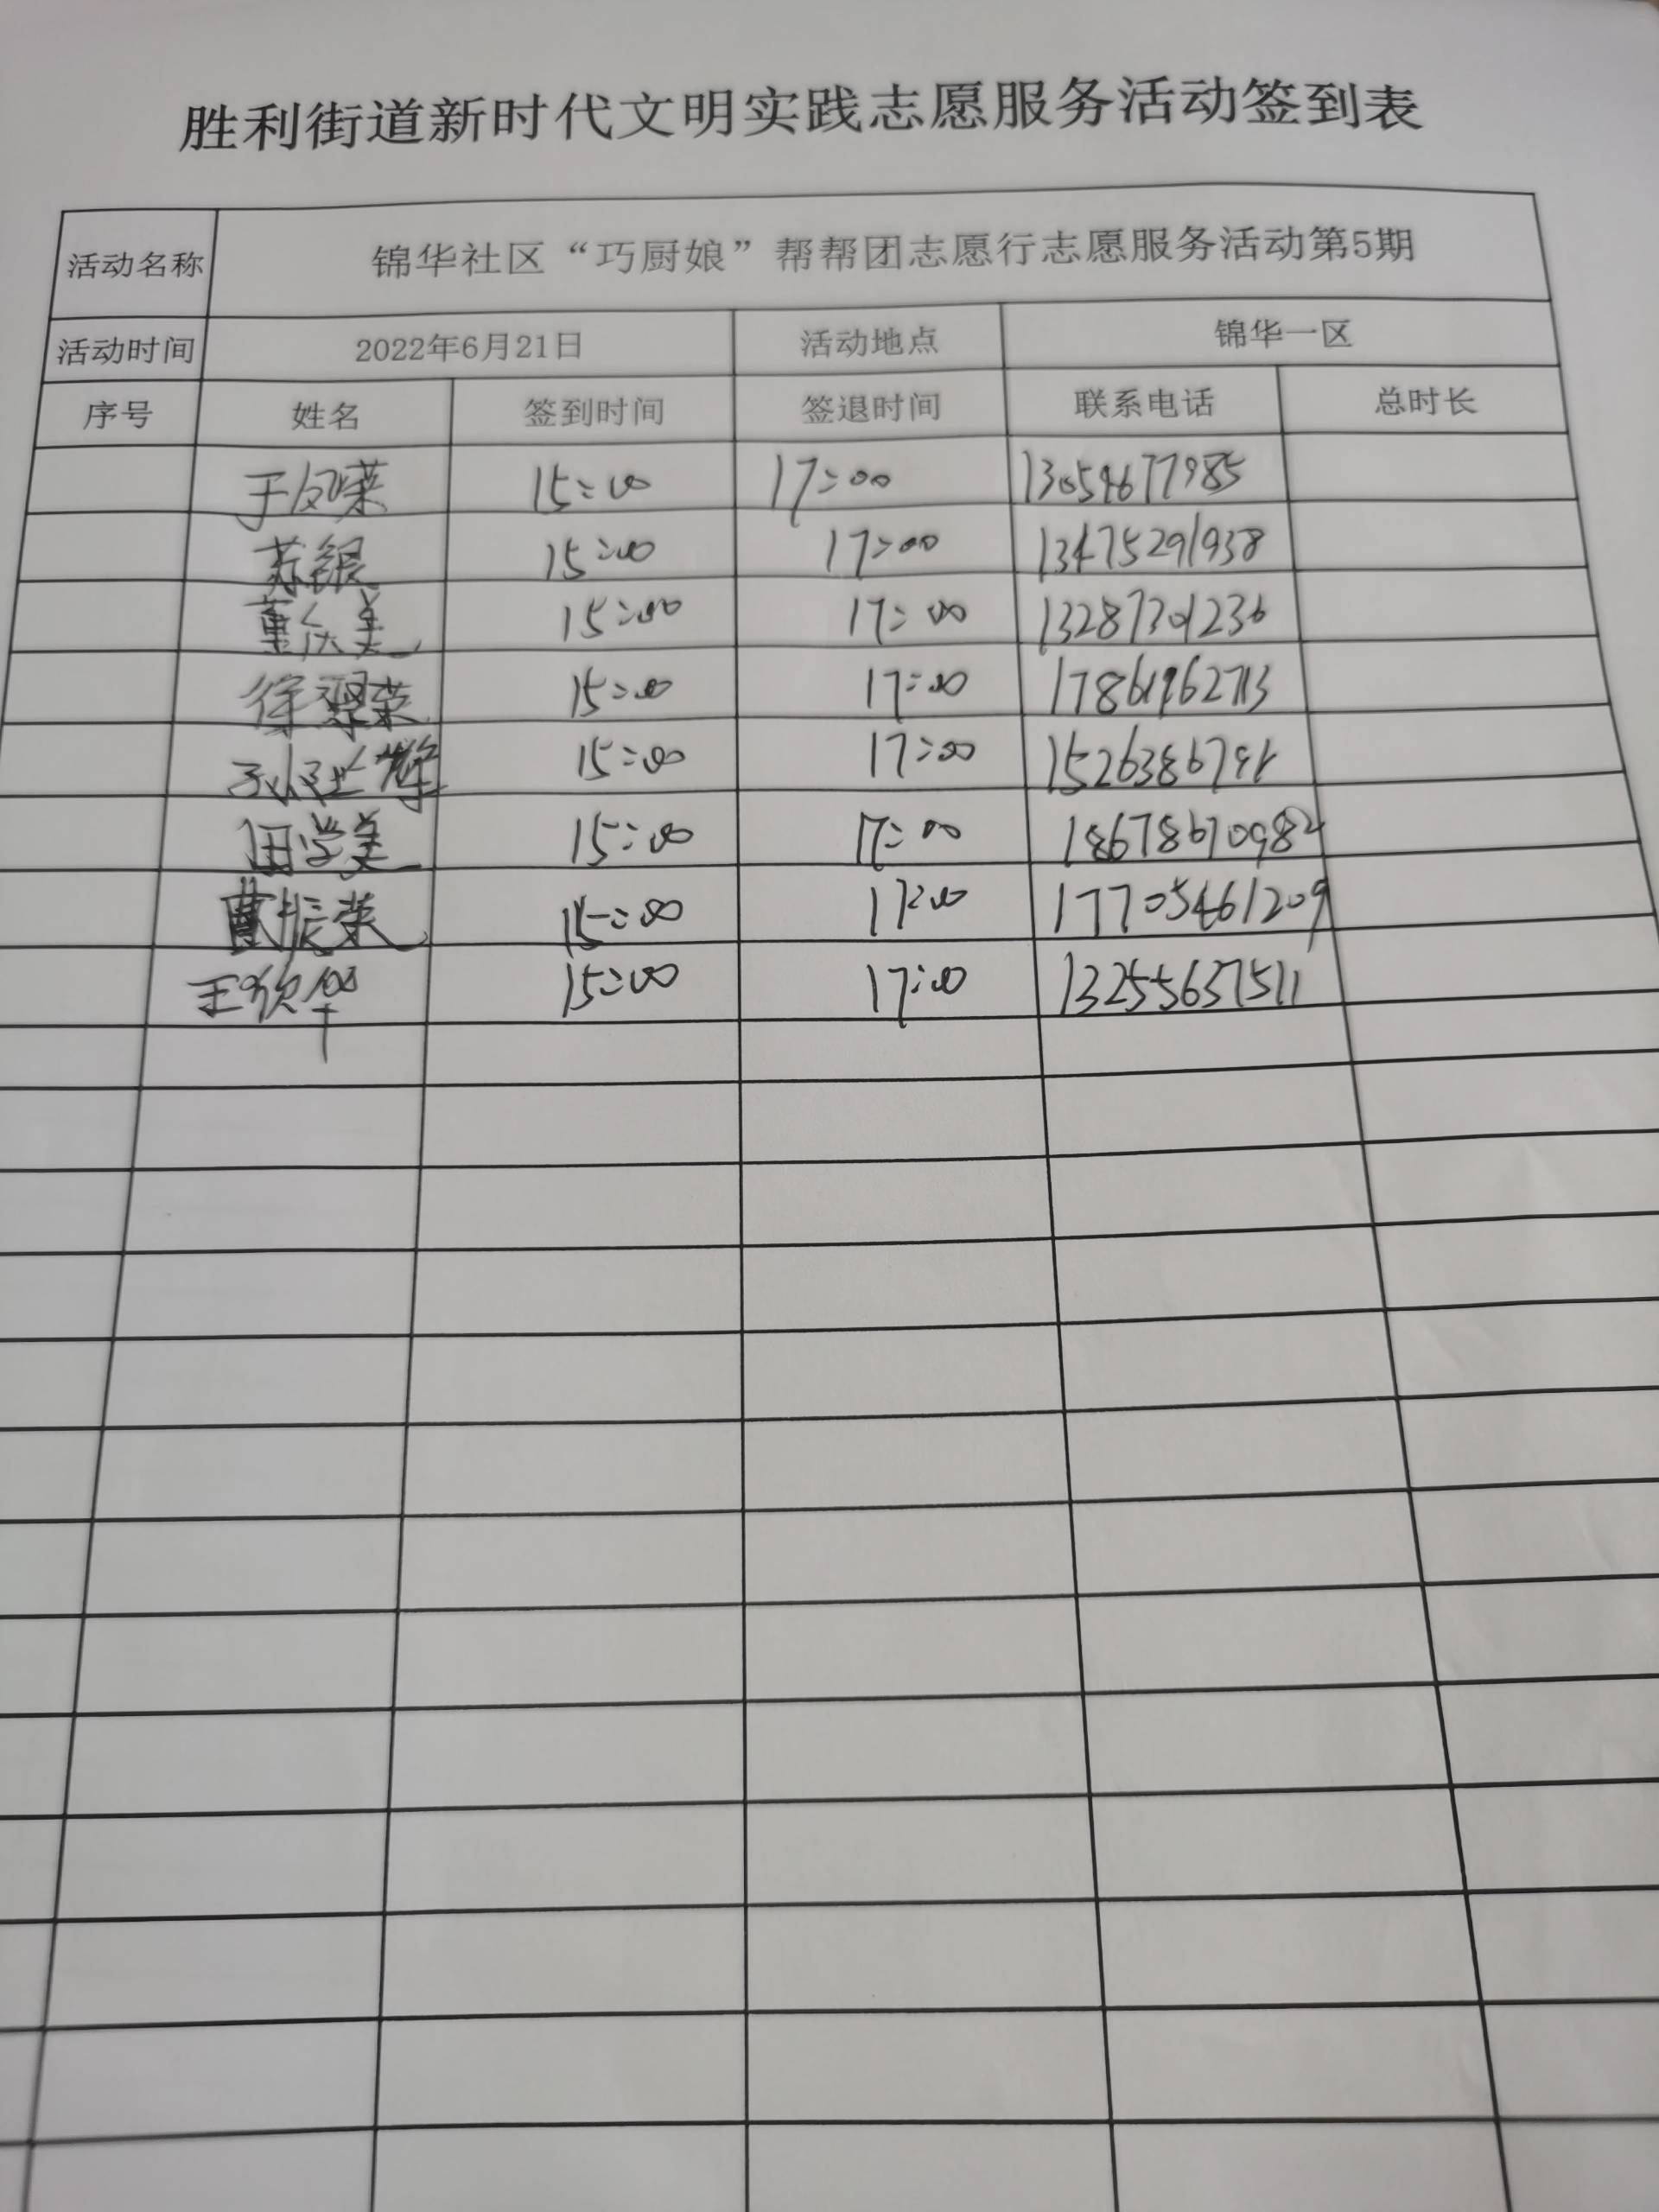 胜利街道新时代文明实践志愿服务活动签到表
活动名称 锦华社区“巧厨娘”帮帮团志愿行志愿服务活动第5期
活动时间 2022年6月21日 活动地点 锦华一区
序号 姓名 签到时间 签退时间 联系电话 总时长
于凤荣 15:00 17:00 13059677985
苏银 15:00 17:00 13475291938
董 美 15:00 17:00 13287301236
徐翠荣 15:00 17:00 17861962713
15:00 17:00 15263867191
田学美 15:00 17:00 18678670982
振荣 15:00 17:00 17705461209
王欣华 15:00 17:00 13255637511